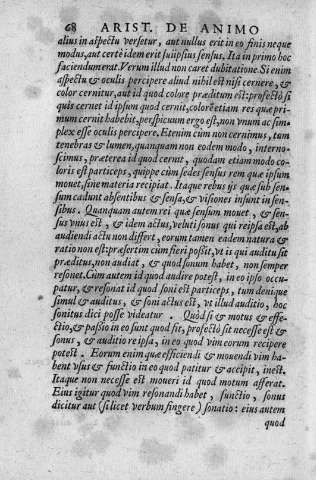 68 ARIST. DE ANIMO
alius in aspectu versetur, aut nullus erit in eo finis neque
modus, aut certè idem erit sui ipsius sensus. Ita in primo hoc
faciendum erat. Verum illud non caret dubitatione. Si enim
aspectu & oculis percipere aliud nihil est nisi cernere, &
color cernitur, aut id quod colore præditum est: profectò si
quis cernet id ipsum quod cernit, colore etiam res quæ pri-
mum cernit habebit, perspicuum ergo est, non vnum ac sim-
plex esse oculis percipere. Etenim cum non cernimus, tum
tenebras & lumen, quanquam non eodem modo, interno-
scimus, præterea id quod cernit, quodam etiam modo co-
loris est particeps, quippe cum sedes sensus rem quæ ipsum
mouet, sine materia recipiat. Itaque rebus ijs quæ sub sen-
sum cadunt absentibus & sensa, & visiones insunt in sen-
sibus. Quanquam autem rei quæ sensum mouet, & sen-
sus vnus est, & idem actus, veluti sonus qui reipsa est, ab
audiendi actu non differt, eorum tamen eadem natura &
ratio non est: præsertim cùm fieri possit, vt is qui auditu sit
præditus, non audiat, & quod sonum habet, non semper
resonet. Cùm autem id quod audire potest, in eo ipso occu-
patur, & resonat id quod soni est particeps, tum denique
simul & auditus, & soni actus est, vt illud auditio, hoc
sonitus dici posse videatur. Quòd si & motus & effe-
ctio, & passio in eo sunt quod fit, profectò sit necesse est &
sonus, & auditio re ipsa, in eo quod vim eorum recipere
potest. Eorum enim quæ efficiendi & mouendi vim ha-
bent vsus & functio in eo quod patitur & accipit, inest.
Itaque non necesse est moueri id quod motum afferat.
Eius igitur quod vim resonandi habet, functio, sonus
dicitur aut (si licet verbum fingere) sonatio: eius autem
quod